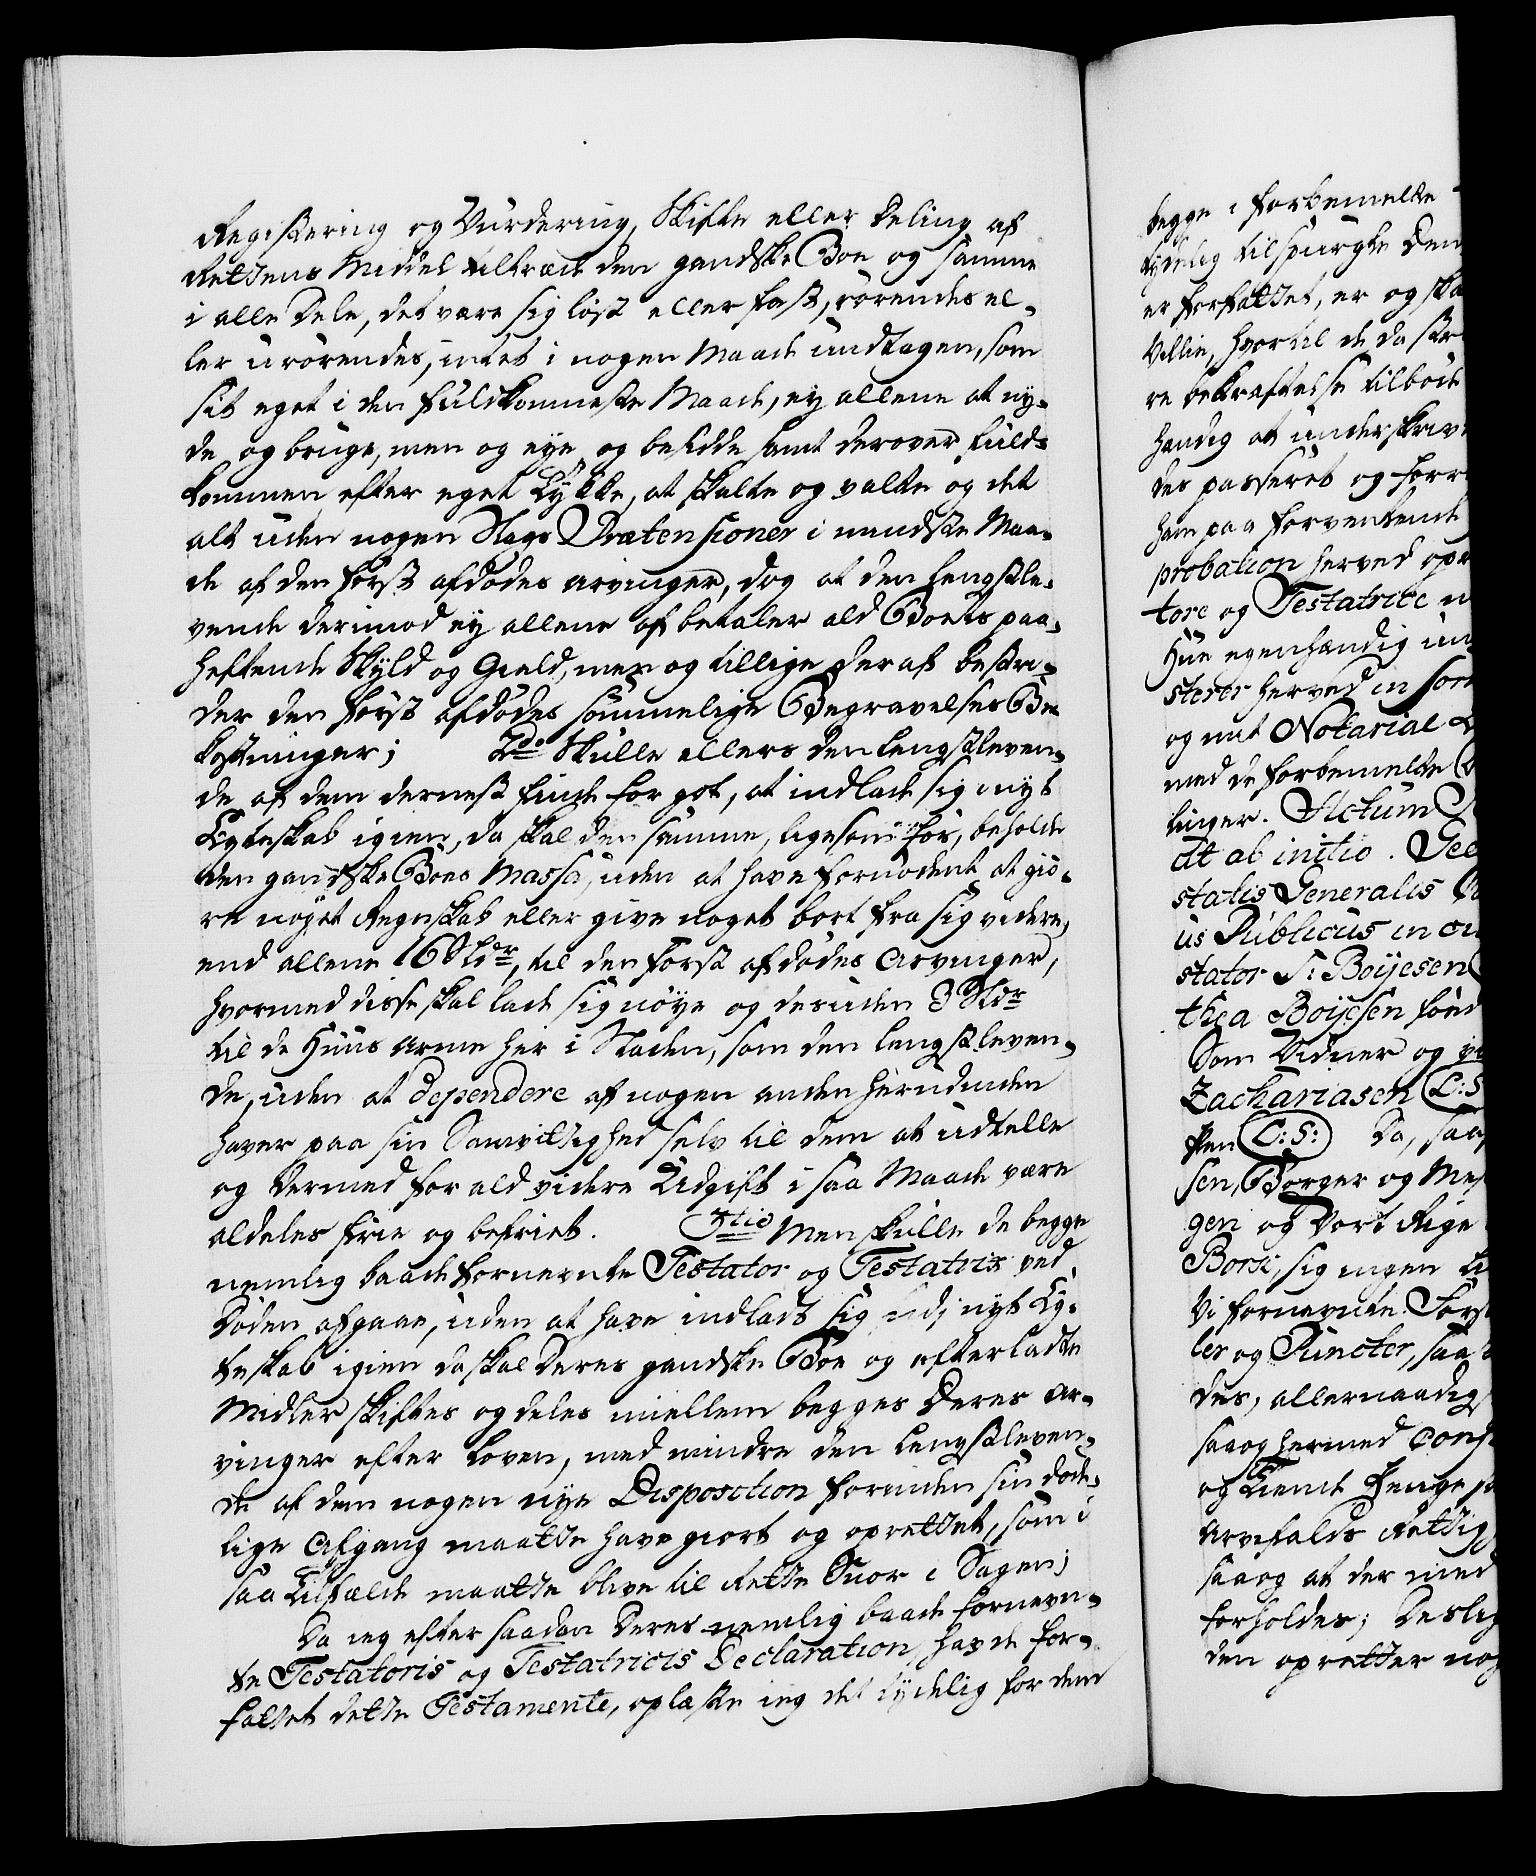 Registering og Vurdering, Skifte eller Deling af
Rettens Middel tiltræde den gandske Boe og samme
i alle Dele, det være sig löst eller fast, rörendes el-
ler urörendes, intet i nogen Maade undtagen, som
sit eget i den fuldkomneste Maade, ey allene at ny-
de og bruge, men og eye og besidde samt derover fuld-
kommen efter eget Tykke, at skalte og valte og det
alt uden nogen Slags Prætensioner i mindste Maa-
de af den först afdödes arvinger, dog at den lengstle-
vende derimod ey allene afbetaler ald Boets paa-
heftende Skyld og Gield, men og tillige deraf bestri-
der den först afdödes sömmelige Begravelses Be-
kostninger; 2do Skulle ellers den lengstleven-
de af dem dernest finde for got, at indlade sig i nyt
Egteskab igien, da skal den samme, ligesom för, beholde
den gandske Boes Massa, uden at have fornödent at giö-
re nöget Regnskab eller give noget bort fra sig videre,
end allene 16 Sldr, til den först afdödes Arvinger,
hvormed disse skal lade sig nöye og desuden 3 Sldr
til de Huus arme her i Staden, som den lengstleven-
de, uden at dependere af nogen anden herudinden
haver paa sin Samvittighed selv til dem at udtelle
og dermed for ald videre Udgift i saa Maade være
aldeles frie og befriet. 3tio Men skulle de begge
nemlig baade fornevnte Testator og Testatrix ved
Döden afgaae, uden at have indladt sig udj nyt Eg-
teskab igien da skal Deres gandske Boe og efterladte
Midler skiftes og deles imellem begges Deres ar-
vinger efter Loven, med mindre den Lengstleven-
de af dem nogen nye Disposition forinden sin döde-
lige Afgang maatte have giort og oprettet, som i
saa Tilfælde maatte blive til Rette Snor i Sagen;
Da ieg efter saadan Deres nemlig baade fornevn-
te Testatoris og Testatricis Declaration, havde for-
fattet dette Testamente, oplæste ieg det tydelig for dem
begge i forbemelte
tydelig tilspurgte Dem
er forfattet, er og ska
Villie, hvortil de da
re bekræftelse tilböd
handig at underskriv
des passeret og
ham paa forventende
probation herved opr
tore og Testatrice
Hue egenhændig un
sterer herved in
og mit Notarial
med de forbemelte
linger. Actum
at ab initio.
statis Generalis
us Publicus in
stator S: Boijesen
thea Boijesen föed
Som Vidner og
Zachariasen L:S
L:S: Da, saa
sen, Borger og
gen og Vort Rige
Börn, sig ingen
Vi fornevnte
ler og Puncter, saa
des, allernaadig
saa og hermed
og Tiende Penge
Arvefalds Rettig
saa og at der med
forholdes; Deslig
den opretter nog